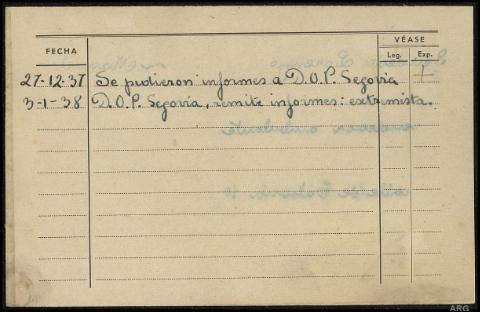 FECHA
VÉASE
Leg. Exp.
27-12-37 Se pidieron informes a D.O.P. Segovia
3-1-38 D.O.P. Segovia, remite informes: extremista.
ARG